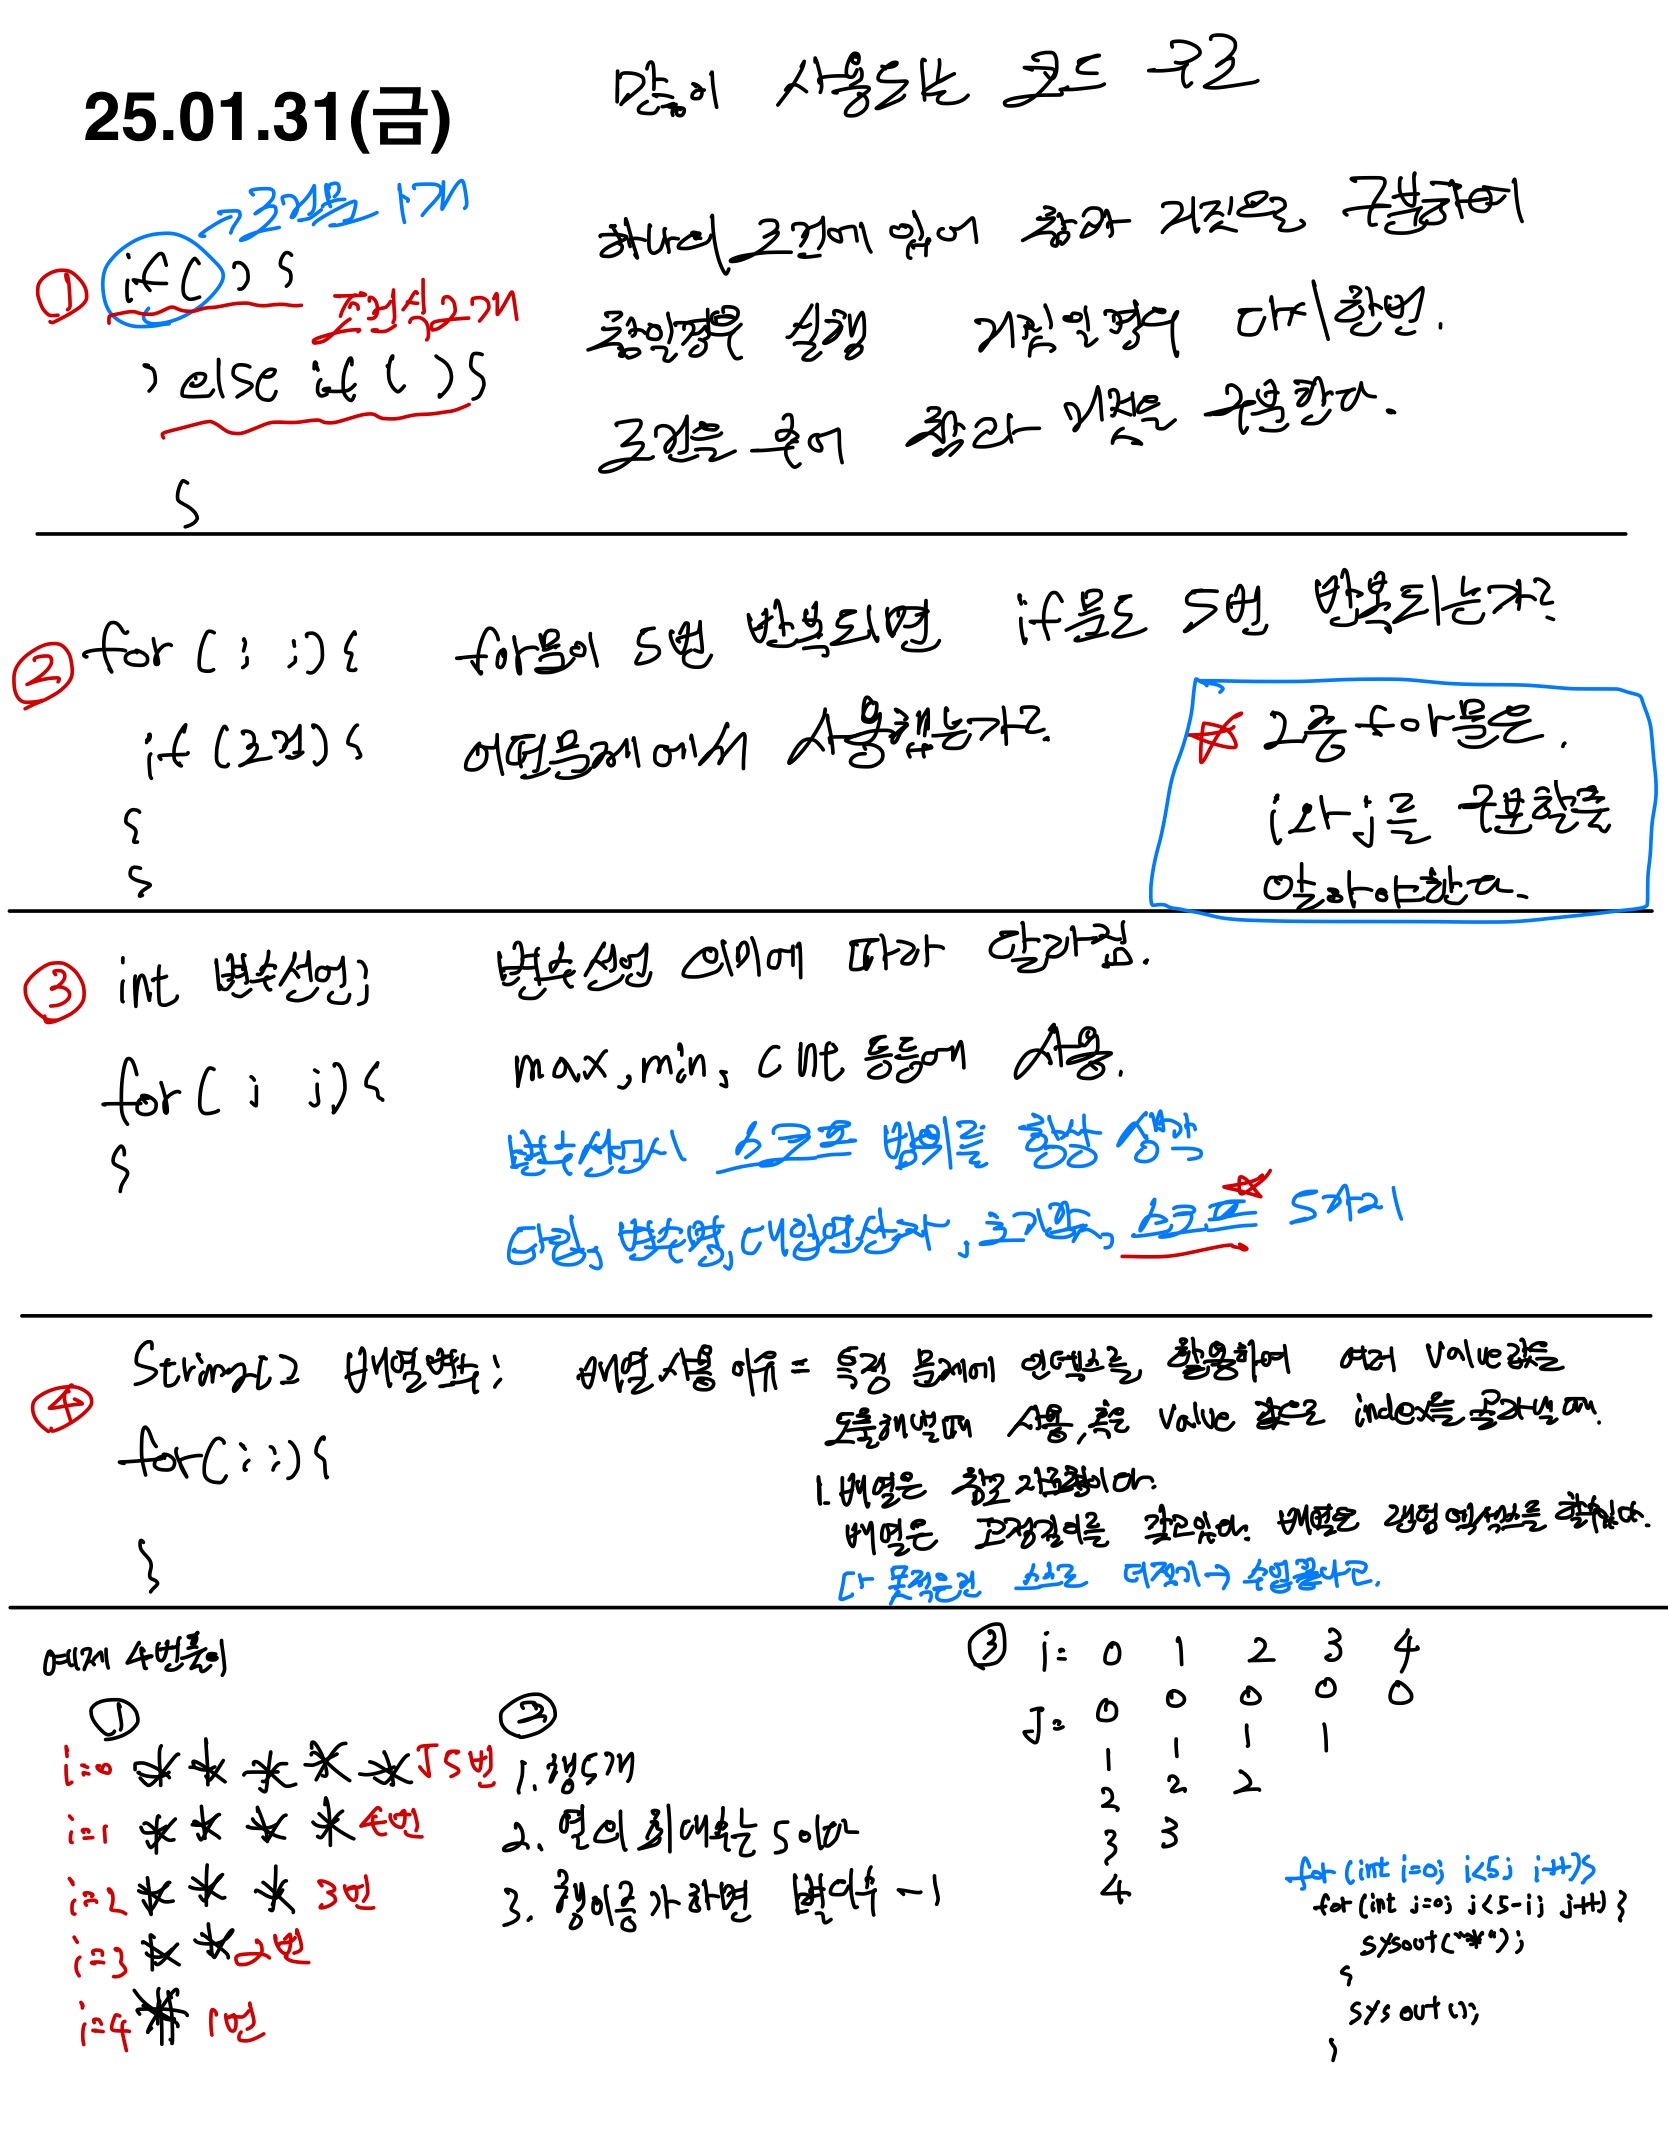 25.01.31(금)
많이 사용되는 코드 구조
→조건문 1개
① if( ) {
조건식2개
} else if ( ) {
}
하나의 조건에 있어 참과 거짓을 구분하여
참일경우 실행 거짓일경우 다시한번.
조건을 주어 참과 거짓을 구분한다.
② for ( ; ;) {
if (조건) {
}
}
for문이 5번 반복되면 if문도 5번 반복되는가?
어떤문제에서 사용했는가?
☆ 2중 for문은.
i와 j를 구분할줄
알아야한다.
③ int 변수선언;
for( ; ;) {
}
변수선언 의미에 따라 달라짐.
max, min, cnt 등등에 사용.
변수선언시 스코프 범위를 항상 생각
타입, 변수명, 대입연산자, 초기값, 스코프 5가지
④ String[] 배열변수;
for( ; ;) {
}
배열사용 이유 = 특정 문제에 인덱스를 활용하여 여러 value값을
도출해낼때 사용, 혹은 value 값으로 index를 골라낼때.
1. 배열은 참조 자료형이다.
배열은 고정길이를 갖고있다. 배열은 랜덤 엑세스를 할수있다.
다 못적은건 스스로 더적기→ 수업끝나고.
예제 4번풀이
①
i=0 * * * * * J 5번
i=1 * * * * 4번
i=2 * * * 3번
i=3 * * 2번
i=4 * 1번
②
1. 행5개
2. 열의 최대수는 5이다
3. 행이증가하면 별의수 -1
③ i= 0 1 2 3 4
J= 0 0 0 0 0
1 1 1 1
2 2 2
3 3
4
for (int i=0; i<5; i++) {
for (int j=0; j<5-i; j++) {
sysout("*");
}
sysout();
}